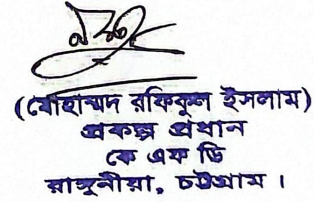 (মোহাম্মদ রফিকুল ইসলাম)
প্রকল্প প্রধান
কে এফ ডি
রাঙ্গুনীয়া, চট্টগ্রাম।